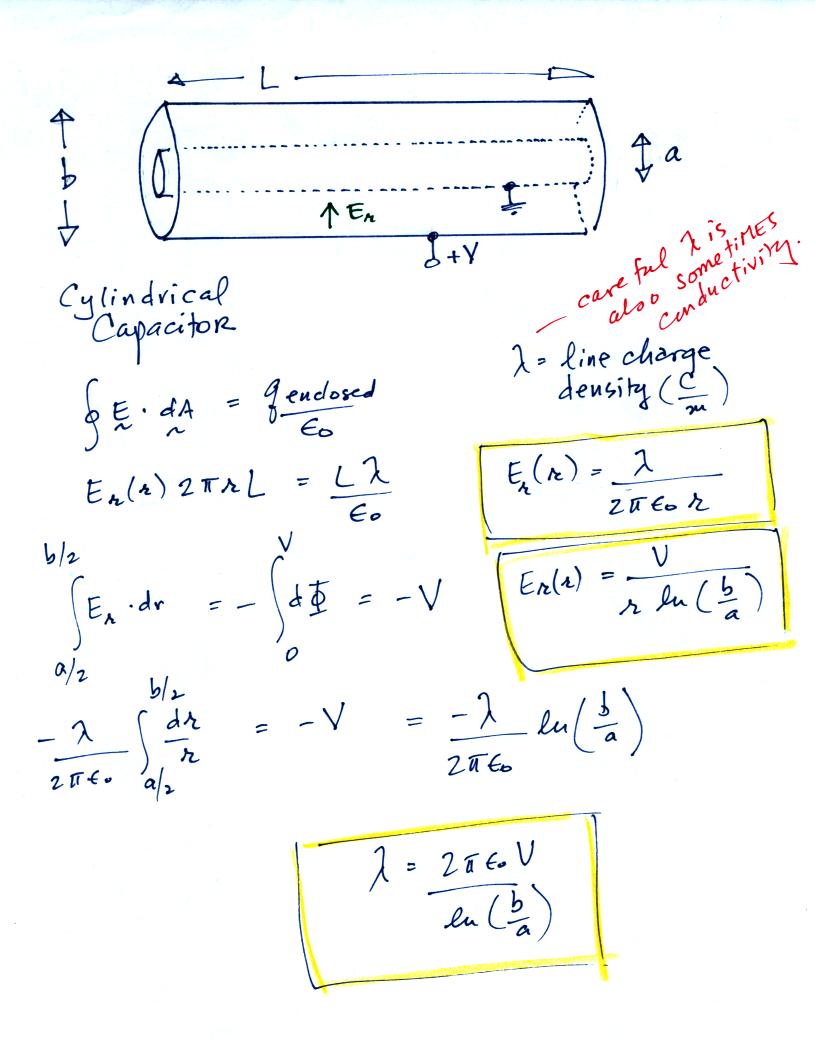 L
b
a
E_r
+V
Cylindrical
Capacitor
— careful λ is
also sometiMES
conductivity.
λ = line charge
density (C/m)
∮ E · dA = q enclosed / ε₀
E_r(r) 2πrL = Lλ / ε₀
E_r(r) = λ / 2πε₀r
∫_{a/2}^{b/2} E_r · dr = - ∫_0^V dΦ = -V
E_r(r) = V / r ln(b/a)
-λ / 2πε₀ ∫_{a/2}^{b/2} dr/r = -V = -λ / 2πε₀ ln(b/a)
λ = 2πε₀V / ln(b/a)